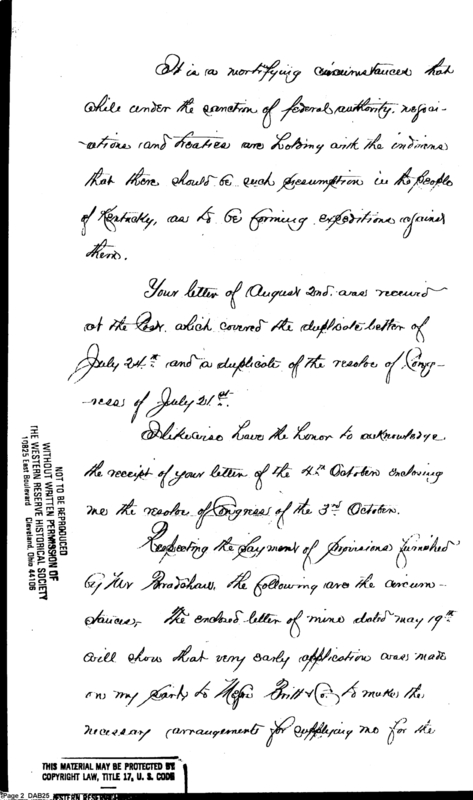 It is a mortifying circumstances that
while under the sanction of federal authority. negoci-
-ations and treaties are holding with the indians
that there should be such presumption in the people
of Kentucky, as to be forming expeditions against
them.
Your letter of August 2nd. was received
at the Post. which covered the duplicate letter of
July 24.th and a duplicate of the resolve of Cong-
-ress of July 21st.
I likewise have the honor to acknowledge
the receipt of your letter of the 4th October enclosing
me the resolve of Congress of the 3rd October.
Respecting the payment of provisions furnished
by Mr Bradshaw, the following are the circum-
stances, The enclosed letter of mine dated may 19th
will show that very early application was made
on my part to Messr Britt & Co. to make the
necessary arrangements for supplying me for the
NOT TO BE REPRODUCED
WITHOUT WRITTEN PERMISSION OF
THE WESTERN RESERVE HISTORICAL SOCIETY
10825 East Boulevard Cleveland, Ohio 44106
THIS MATERIAL MAY BE PROTECTED BY
COPYRIGHT LAW, TITLE 17, U. S. CODE
Page 2 DAB25
WESTERN RESERVE